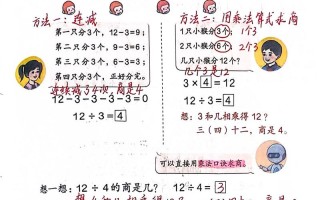 方法一：连减
方法二：用乘法算式求商
第一只分3个，12-3=9；
第二只分3个，9-3=6；
第三只分3个，6-3=3；
第四只分3个，正好分完。
连续减了4次，商是4
12-3-3-3-3=0
12÷3=4
1只小猴分3个； 1个3
2只小猴分6个； 2个3
几只小猴分12个？
几个3是12
3×4=12
12÷3=4
想：3和几相乘得12？
三（四）十二，商是4。
可以直接用乘法口诀求商。
想一想：12÷4的商是几？ 12÷4=3